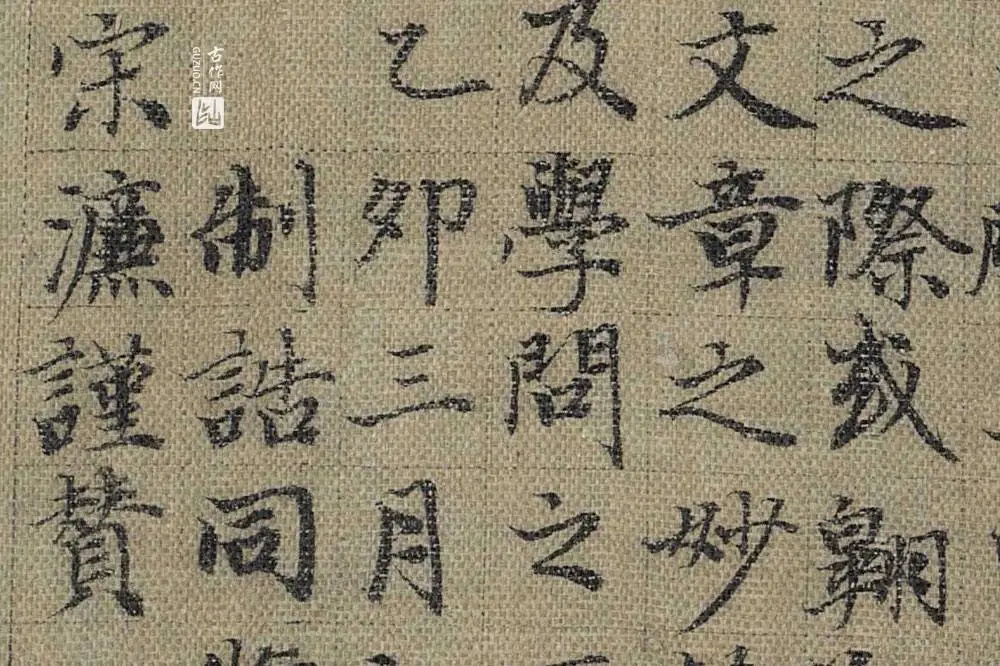 之際或翱
文章之妙
及學問之
乙卯三月
制誥同
宋濂謹贊
古作网
GUZUO.CN